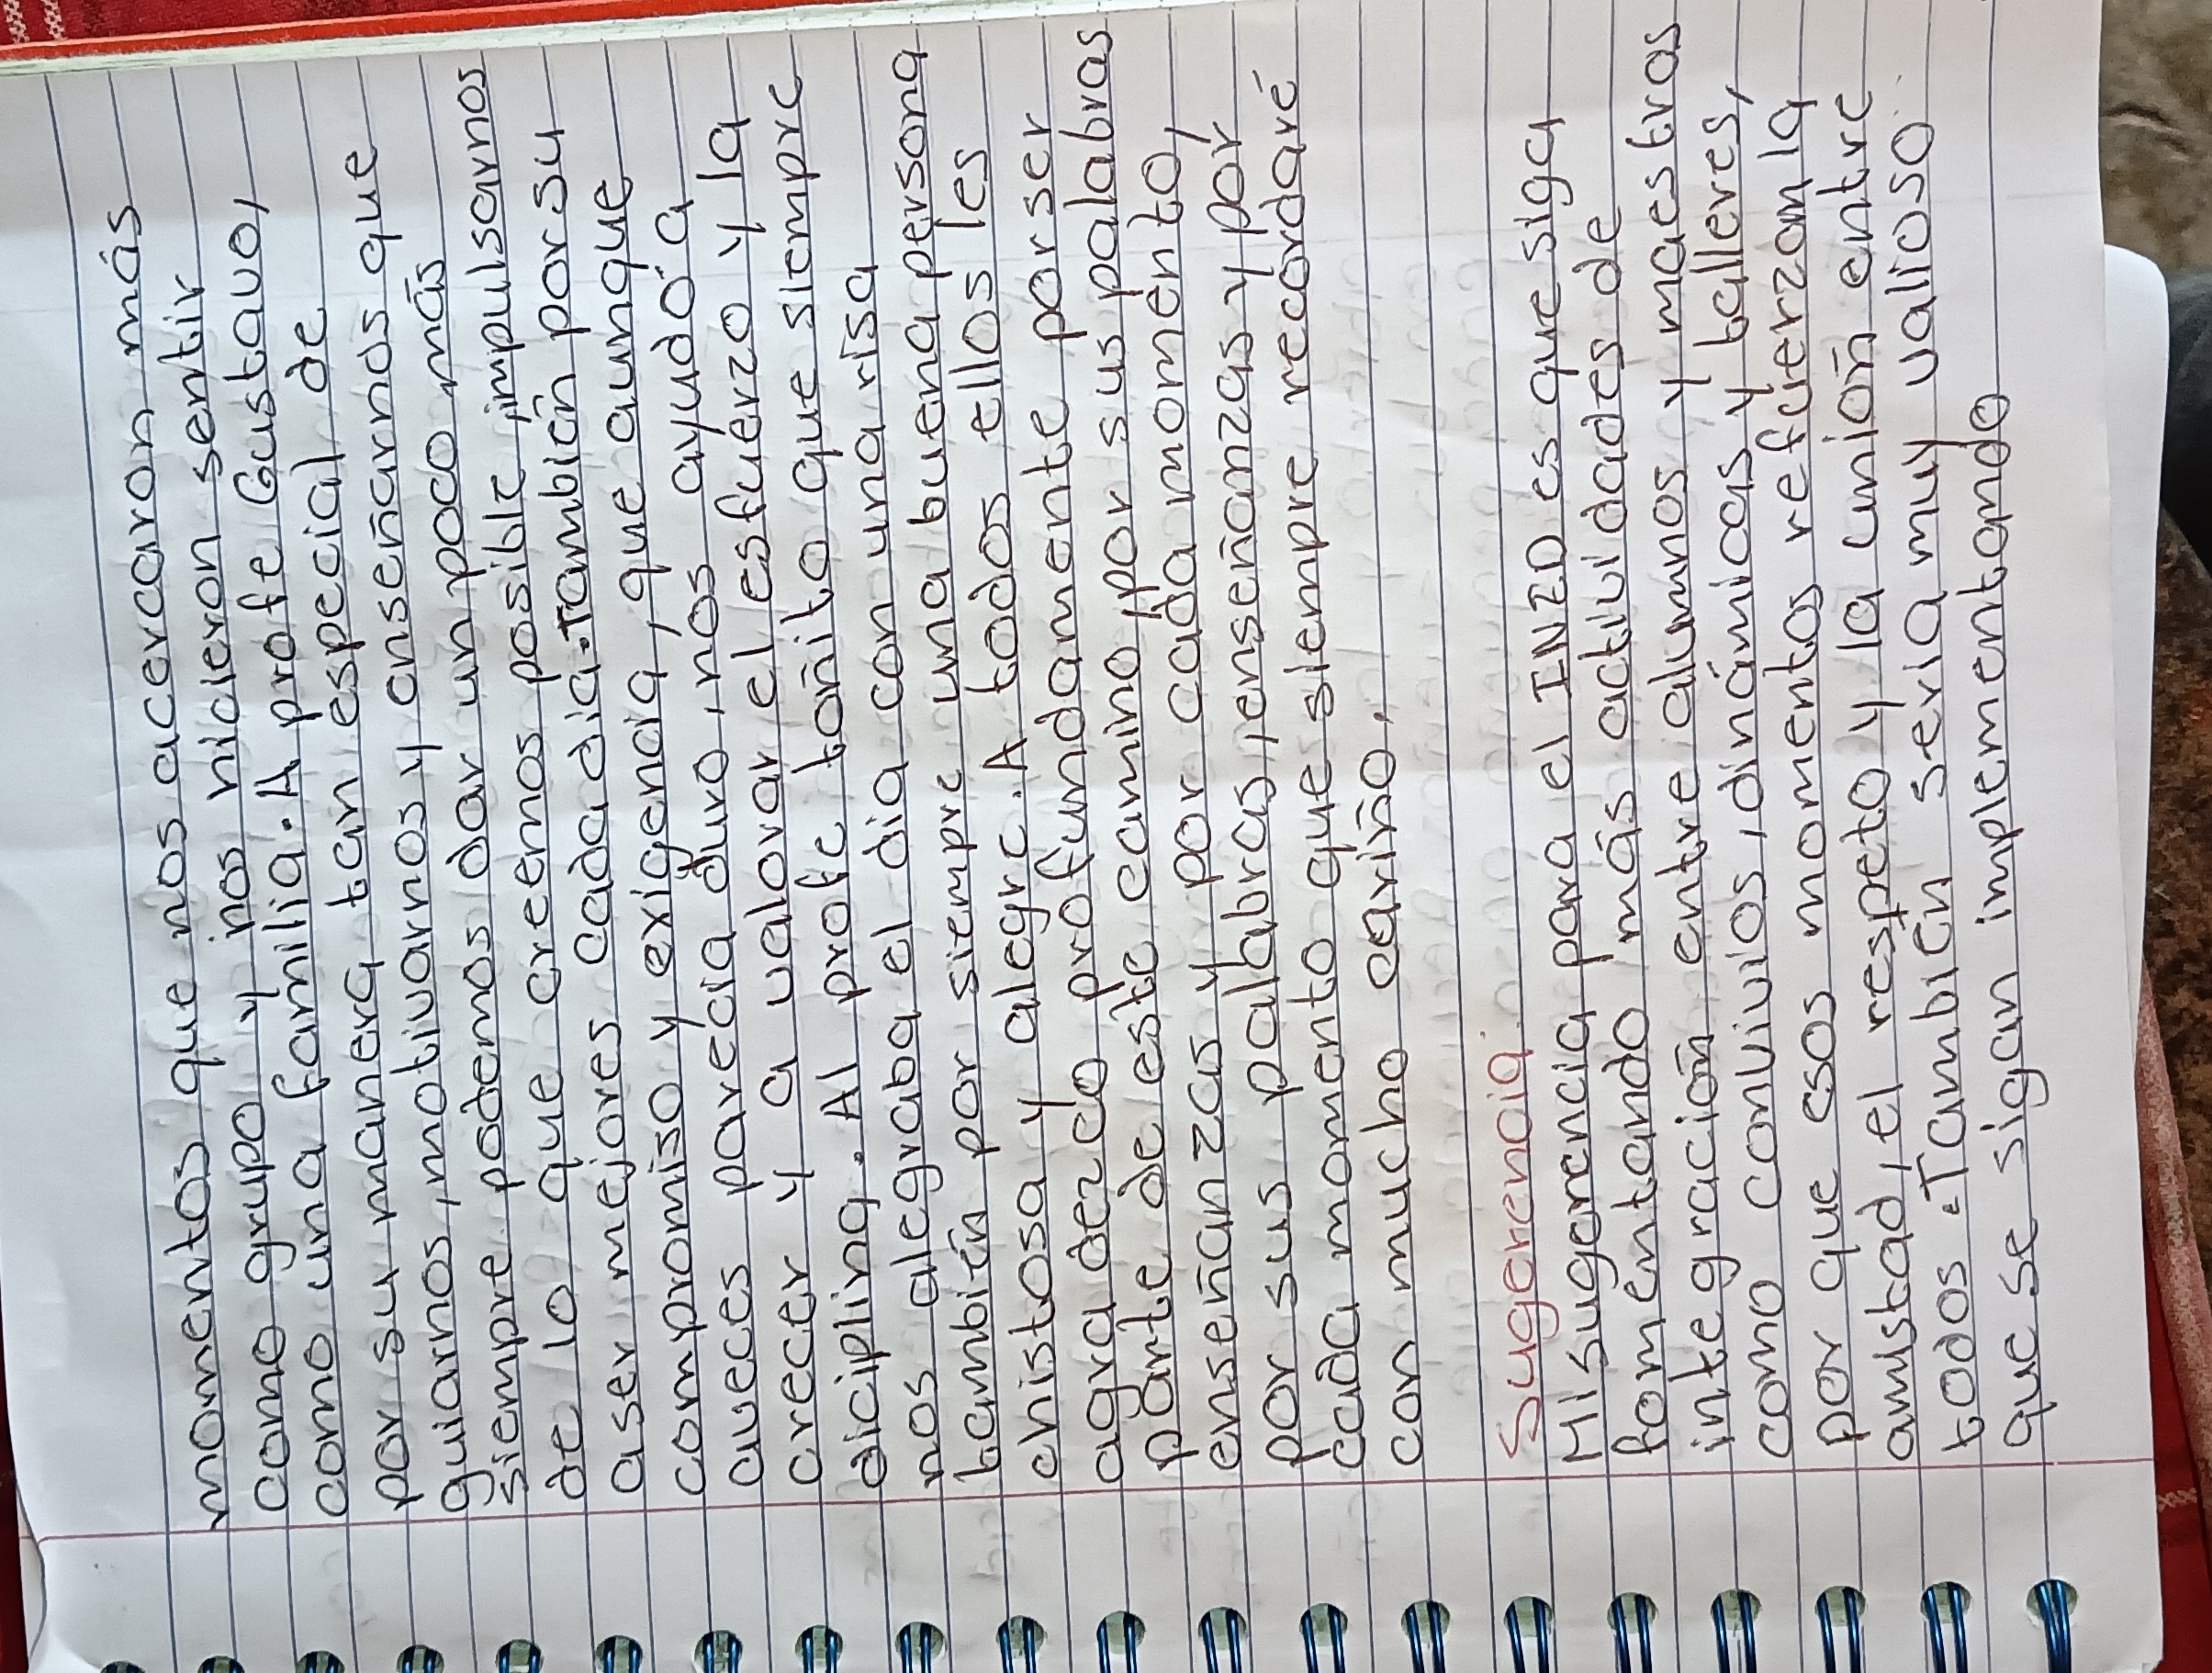 momentos que nos acercaron más
como grupo y nos hicieron sentir
como una familia. A profe Gustavo,
por su manera tan especial de
guiarnos, motivarnos y enseñarnos que
siempre podemos dar un poco más
de lo que creemos posible, impulsarnos
a ser mejores cada dia. También por su
compromiso y exigencia, que aunque
aveces parecia duro, nos ayudó a
crecer y a valorar el esfuerzo y la
diciplina. Al profe toñito que siempre
nos alegraba el dia con una risa
también por siempre una buena persona
chistosa y alegre. A todos ellos les
agradezco profundamente por ser
parte de este camino, por sus palabras
enseñanzas y por cada momento,
por sus palabras, enseñanzas y por
cada momento que siempre recordaré
con mucho cariño.
Sugerencia
Mi sugerencia para el INED es que siga
fomentando más actividades de
integración entre alumnos y maestros
como convivios, dinámicas y talleres,
por que esos momentos refuerzan la
amistad, el respeto y la unión entre
todos. También seria muy valioso
que se sigan implementando